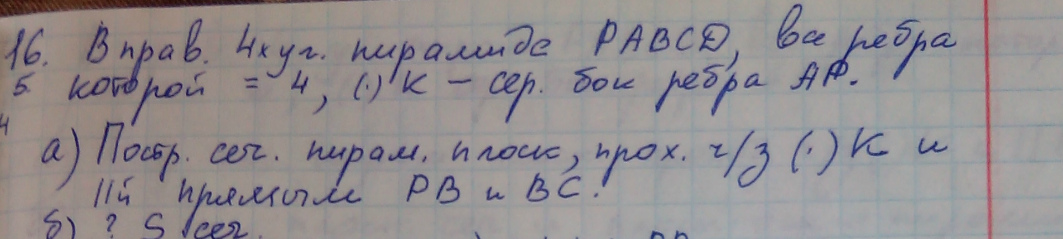 16. В прав. 4х уг. пирамиде PABCD, все ребра
5 которой = 4, (·) K – сер. бок ребра AP.
4
а) Постр. сеч. пирам. плоск, прох. ч/з (·) K и
||й прямым PB и BC.
б) ? S сеч.